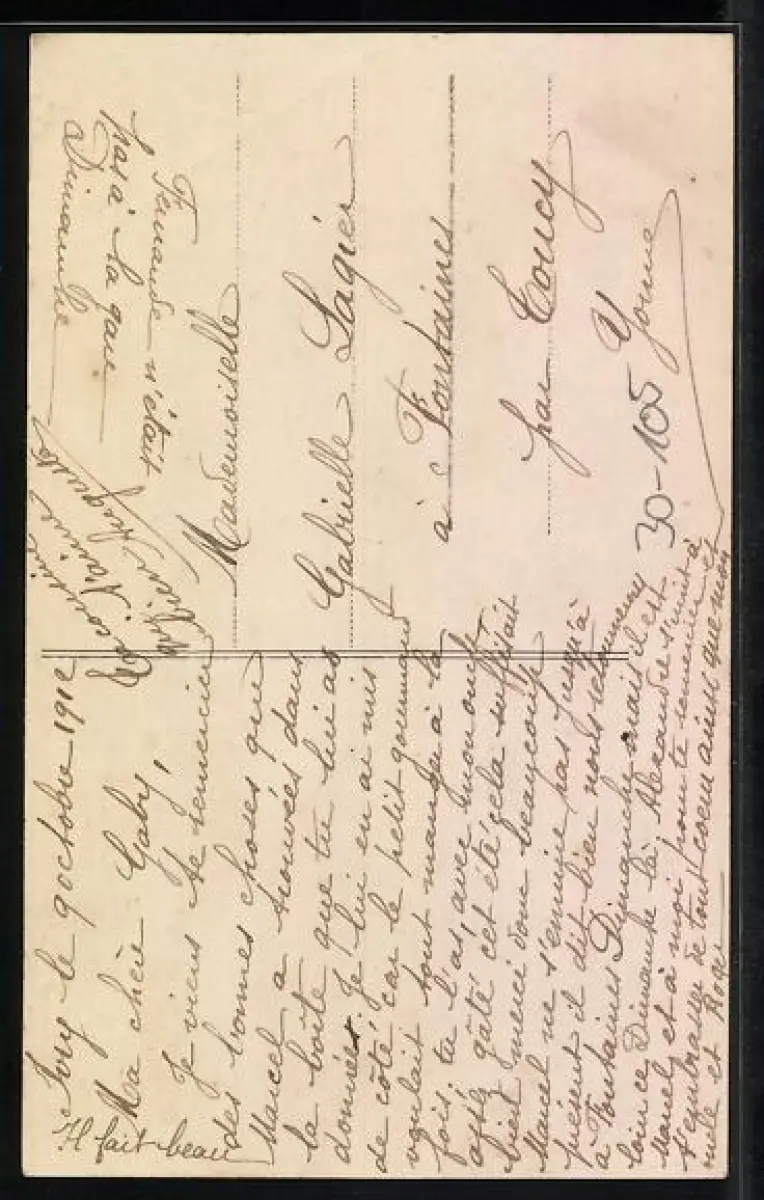 Ivry le 9 octobre 1912
Ma chère Gaby,
Je viens te remercier
des bonnes choses que
Marcel a trouvées dans
la boîte que tu lui as
donnée. Je lui en ai mis
de côté car le petit gourmand
voulait tout manger à la
fois. tu l'as, avec mon oncle
assez gâté cet été, cela suffisait
bien merci donc beaucoup
Marcel ne s'ennuie pas jusqu'à
présent il dit bien nous retournerons
à Fontaines Dimanche mais il est
loin ce Dimanche là. Alexandre s'unit à
Marcel et à moi pour te remercier et
t'embrasser de tout coeur ainsi que mon
oncle et Roger
Ta cousine
Marie Auguste
Il fait beau
Fernande n'était
pas à la gare
Dimanche
Mademoiselle
Gabrielle Lagier
à Fontaines
par Toucy
Yonne
30-105